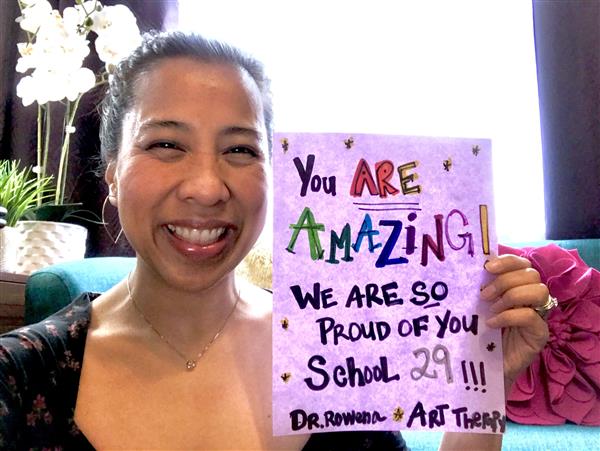 You ARE
AMAZING!
WE ARE SO
PROUD OF YOU
SCHOOL 29!!!
DR. Rowena ART Therapy